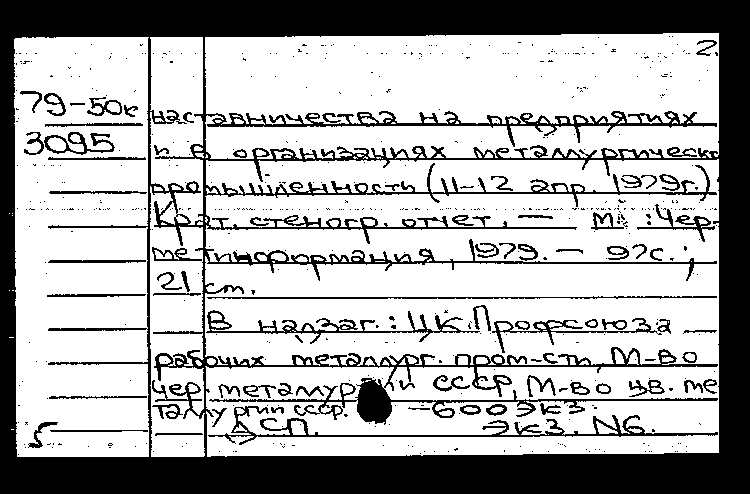 2.
79-50к
3095
наставничества на предприятиях
и в организациях металлургическо
промышленности (11-12 апр. 1979г.)
Крат. стеногр. отчет. — М. : Чер-
метинформация, 1979. — 97с. ;
21 см.
В надзаг. : ЦК Профсоюза
рабочих металлург. пром-сти, М-во
чер. металлургии СССР, М-во цв. ме
таллургии ссср. — 600 экз.
ДСП. Экз. N6.
5